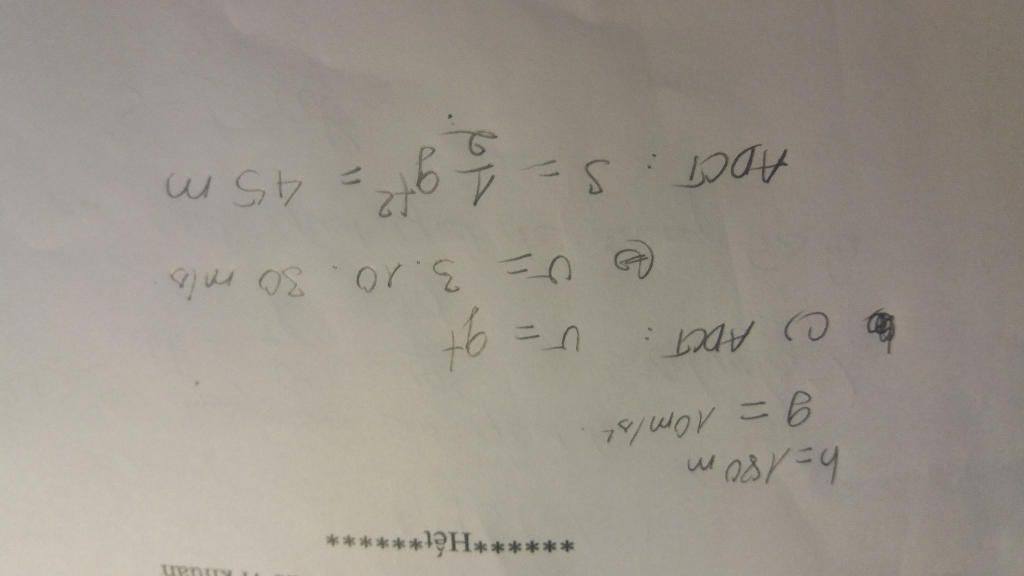 vi khuẩn
******Hết******
h = 180 m
g = 10 m/s²
c) ADCT : v = gt
v = 3.10 . 30 m/s
ADCT : S = 1/2 gt² = 45 m